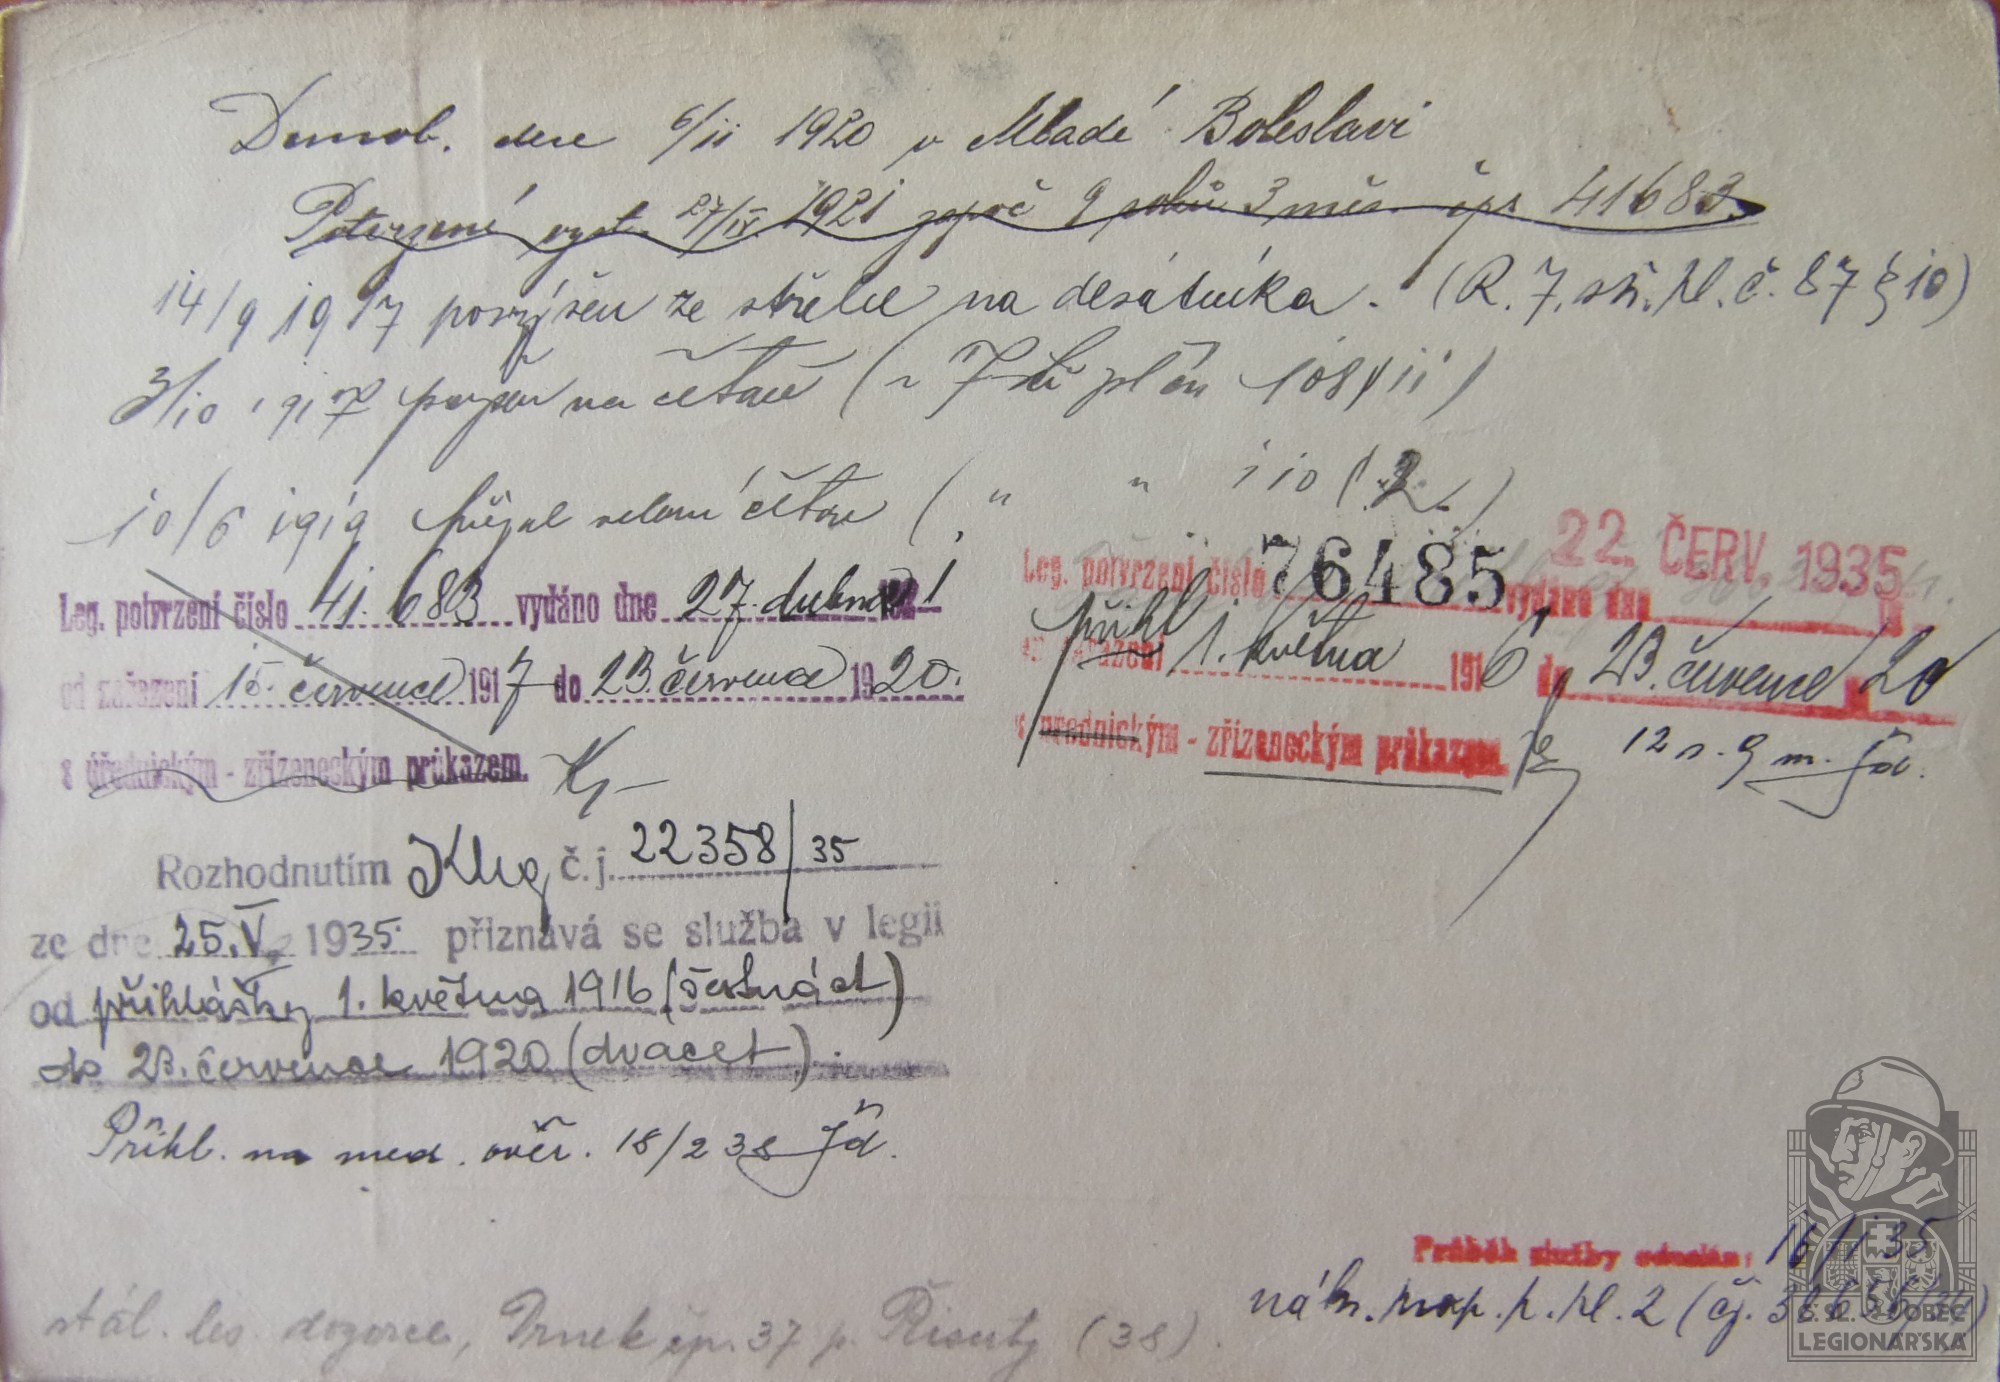 Demob. dne 6/11 1920 v Mladé Boleslavi
Potvrzení vyst. 27/IV. 1921 započ 9 roků 3 měs. čps 41683.
14/9 1917 povýšen ze střelce na desátníka. (R. 7. stř. pl. č. 87 § 10)
3/10 1917 povýšen na četaře ( 7 stř pl čís 108/11)
10/6 1919 velení četou ( " " 110
Leg. potvrzení číslo 41.683 vydáno dne 27. dubna 1921
od zařazení 15. července 1917 do 23. července 1920.
s úřednickým - zřízeneckým průkazem.
Leg. potvrzení číslo 76485 vydáno dne 22. ČERV. 1935
přihl
zařazení 1. května 1916 do 23. července 20
s úřednickým - zřízeneckým průkazem. 12 r. 9 m.
Rozhodnutím Klug č.j. 22358/35
ze dne 25.V. 1935 přiznává se služba v legii
od přihlášky 1. května 1916 (šestnáct)
do 23. července 1920 (dvacet).
Přihl. na med. 18/2 38
Průběh služby odeslán: 16/1 35
náhr. prap. p. pl. 2 (čj.
stál. les. dozorce, Trnek čp. 37 p. Řisuty (38).
Č.S. OBEC
LEGIONÁŘSKÁ